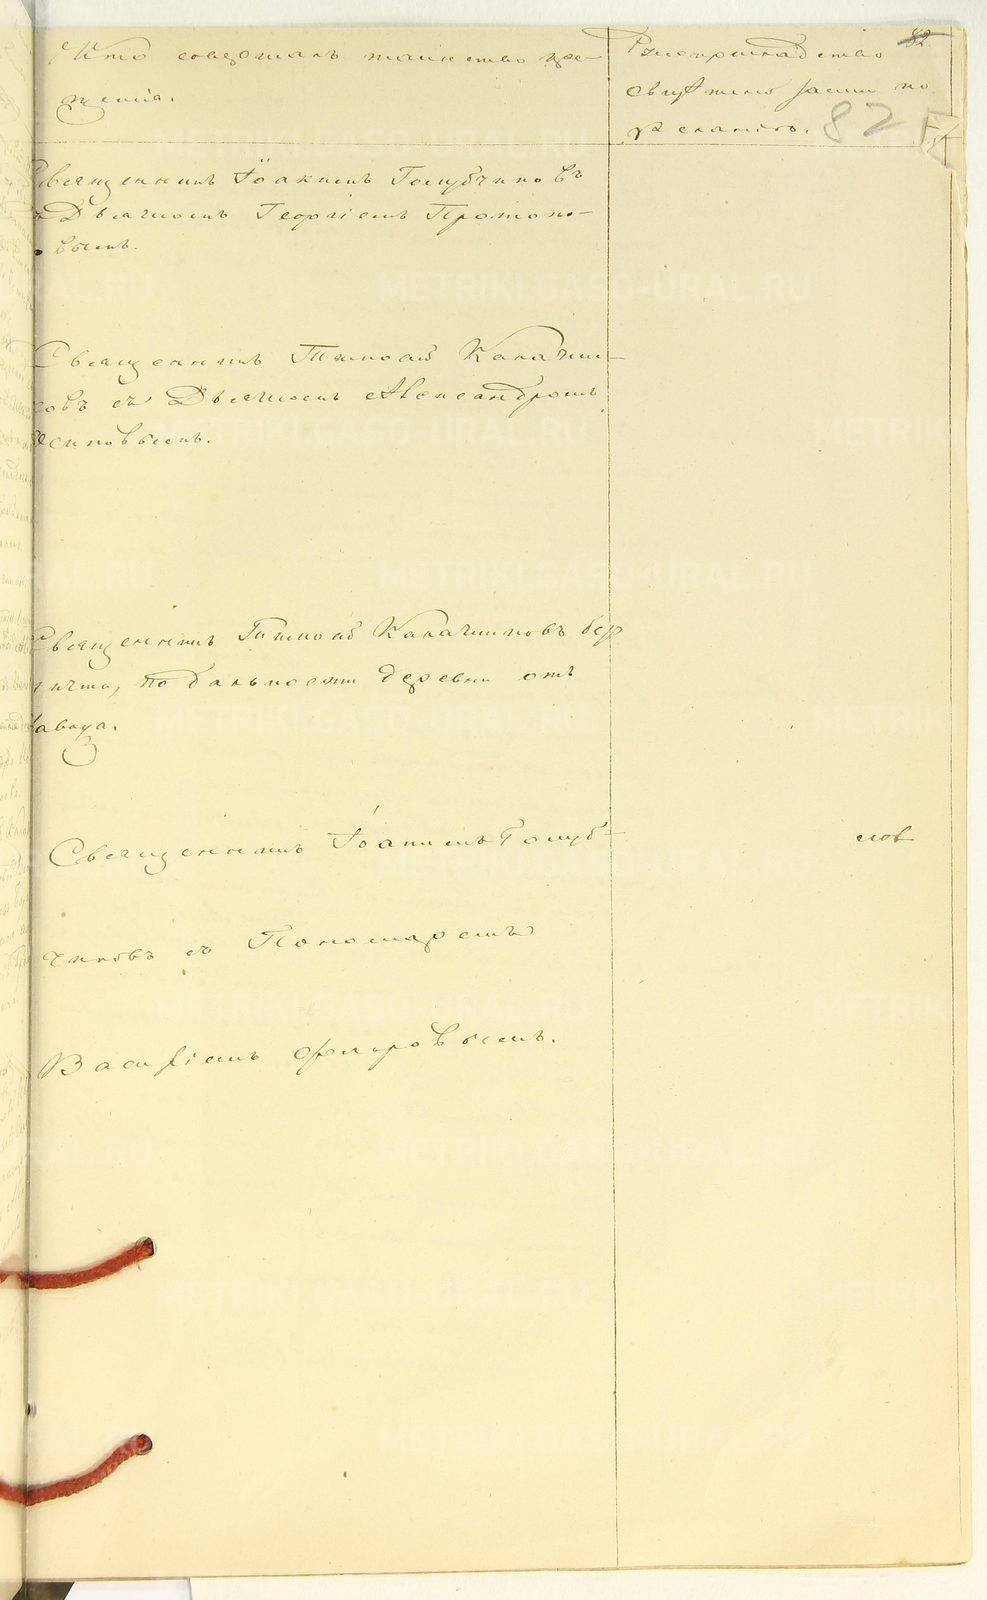 Кто совершалъ таинство кре-
щенія.
Рукоприкладство
свидѣтелей записи по
желанію.
82
82
Священникъ Іоакимъ Голубчиковъ
съ Дьячкомъ Георгіемъ Протопо-
повымъ.
Священникъ Тимоѳей Калачни-
ковъ съ Дьячкомъ Александромъ
Священникъ Тимоѳей Калачниковъ безъ
причта, по дальности деревни отъ
завода.
Священникъ Іоакимъ Голуб-
чиковъ съ Пономаремъ
Василіемъ Флоровымъ.
METRIKI.GASO-URAL.RU